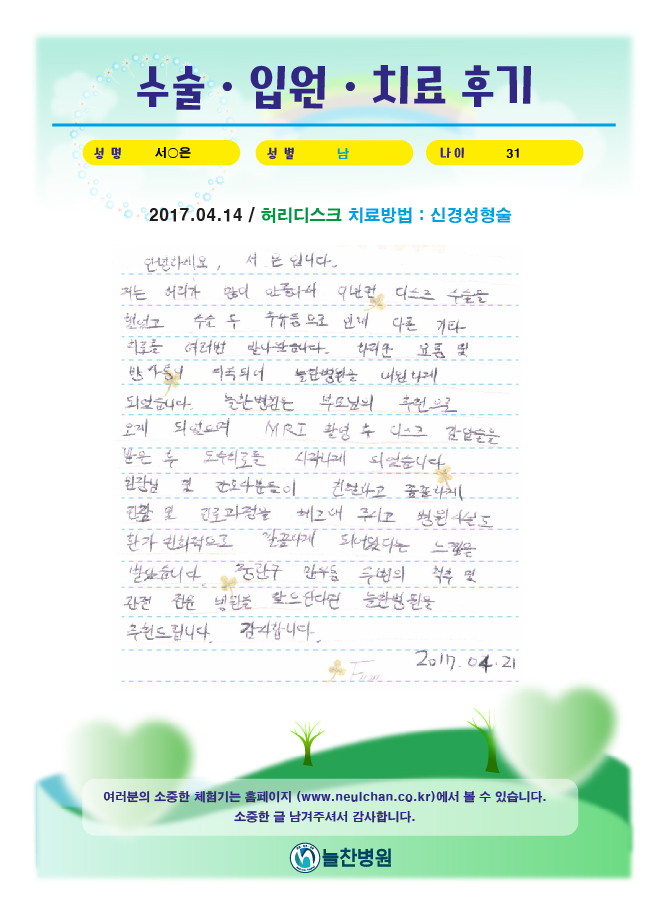 수술 · 입원 · 치료 후기
성명 서○은 성별 남 나이 31
2017.04.14 / 허리디스크 치료방법 : 신경성형술
안녕하세요, 서 은 입니다.
저는 허리가 많이 안좋아서 이번에 디스크 수술을
했었고 수술 후 후유증으로 인해 다른 기타
치료를 여러번 받아왔습니다. 하지만 요통 및
반 지속되어 늘찬병원을 내원하게
되었습니다. 늘찬병원은 부모님의 추천으로
오게 되었으며 MRI 촬영 후 디스크 감압술을
받은 후 도수치료를 시작하게 되었습니다.
원장님 및 간호사분들이 친절하고 꼼꼼하게
진찰 및 진료과정을 체크해 주시고 병원시설도
환자 친화적으로 깔끔하게 되어있다는 느낌을
받았습니다. 중랑구 면목동 주변의 척추 및
관절 전문 병원을 찾으신다면 늘찬병원을
추천드립니다. 감사합니다.
2017.04.21
여러분의 소중한 체험기는 홈페이지 (www.neulchan.co.kr)에서 볼 수 있습니다.
소중한 글 남겨주셔서 감사합니다.
늘찬병원